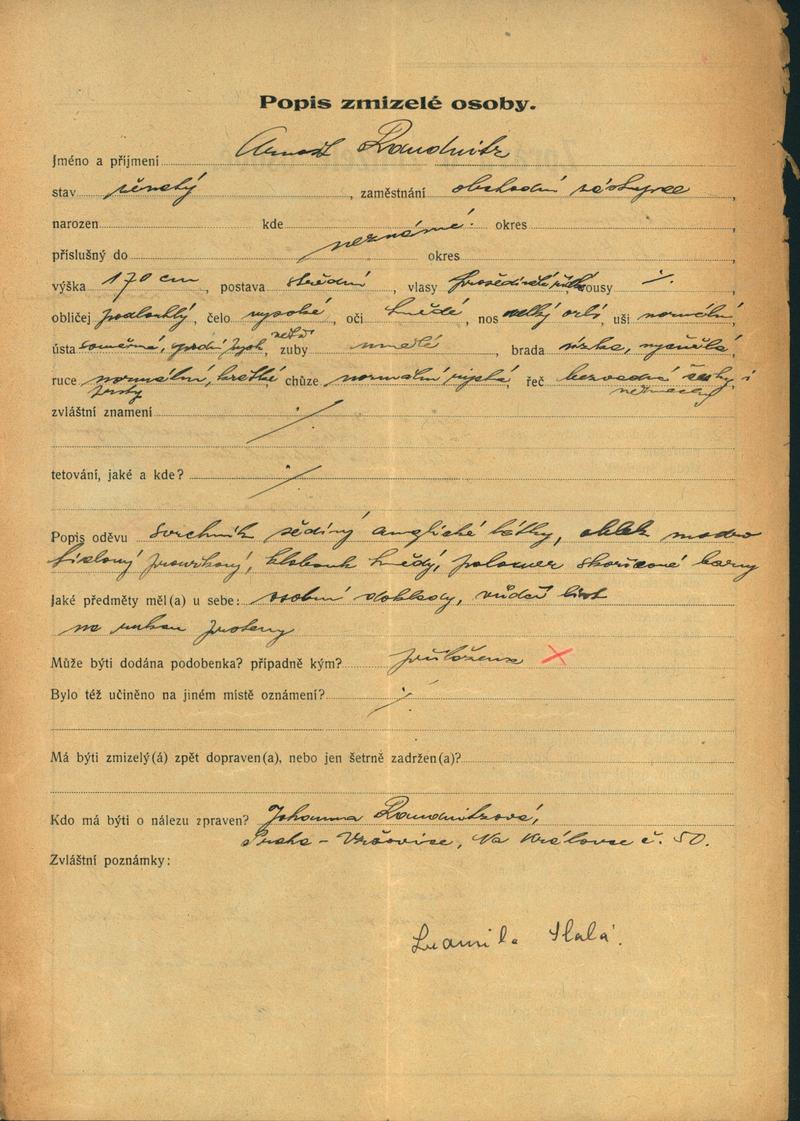 Popis zmizelé osoby.
Jméno a příjmení Arnošt Raudnitz
stav ženatý, zaměstnání obchodní zástupce,
narozen kde okres
neznámé.
příslušný do okres
výška 170 cm, postava střední, vlasy prošedivělé vousy ./.
obličej podlouhlý, čelo vysoké, oči hnědé, nos velký orlí, uši normální,
ústa souměrná, zuby umělé, brada nízká,
ruce normální, krátké prsty chůze normální rychlá, řeč bezvadná česky i německy
zvláštní znamení ./.
tetování, jaké a kde? ./.
Popis oděvu svrchník šedivý anglické látky, oblek modro
proužkovaný, klobouk hnědý, skořicové barvy
Jaké předměty měl(a) u sebe: osobní doklady, vůdčí list
na rukou prsteny
Může býti dodána podobenka? případně kým? přiložena X
Bylo též učiněno na jiném místě oznámení? ./.
Má býti zmizelý(á) zpět dopraven(a), nebo jen šetrně zadržen(a)?
Kdo má býti o nálezu zpraven? Johanna Raudnitzová,
Praha - Vršovice, Na Královce č. 50.
Zvláštní poznámky:
Ludmila Halá.